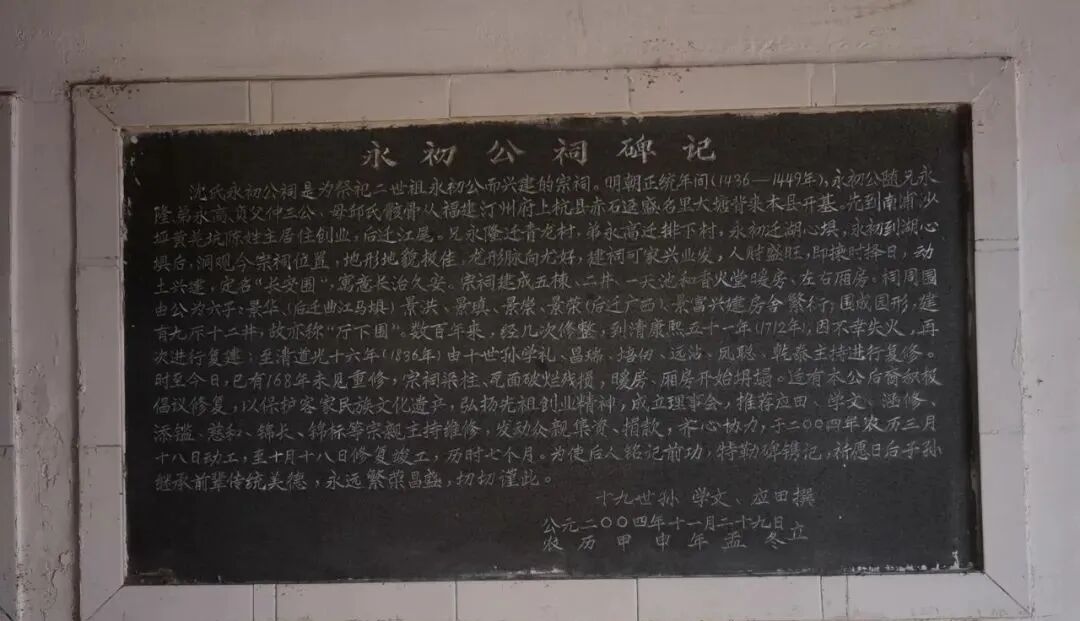 永初公祠碑记
沈氏永初公祠是为祭祀二世祖永初公而兴建的宗祠。明朝正统年间(1436—1449年),永初公随兄永
隆、弟永高、负父仲三公、母邱氏骸骨从福建汀州府上杭县赤石迳盛名里大塘背来本县开基。先到南浦沙
坵黄羌坑陈姓主居住创业,后迁江尾。兄永隆迁青龙村,弟永高迁排下村,永初迁湖心坝。永初到湖心
坝后,洞观今宗祠位置,地形地貌极佳,龙形脉向尤好,建祠可家兴业发,人财盛旺,即择时择日,动
土兴建,定名“长安围”,寓意长治久安。宗祠建成五栋、二井、一天池和香火堂暖房、左右厢房。祠周围
由公为六子:景华、(后迁曲江马坝)景洪、景瑱、景崇、景荣(后迁广西)、景富兴建房舍繁衍,围成园形,建
有九厅十二井,故亦称“厅下围”。数百年来,经几次修整,到清康熙五十一年(1712年),因不幸失火,再
次进行复建;至清道光十六年(1836年)由十世孙学礼、昌瑞、培伯、远沾、凤聪、乾泰主持进行复修。
时至今日,已有168年未见重修,宗祠梁柱、瓦面破烂残损,暖房、厢房开始坍塌。适有本公后裔积极
倡议修复,以保护客家民族文化遗产,弘扬先祖创业精神,成立理事会,推荐应田、学文、涵修、
添镒、慈和、锦长、锦标等宗亲主持维修,发动众亲集资、捐款,齐心协力,于二〇〇四年农历三月
十八日动工,至十月十八日修复竣工,历时七个月。为使后人铭记前功,特勒碑镌记,祈愿日后子孙
继承前辈传统美德,永远繁荣昌盛,切切谨此。
十九世孙 学文、应田撰
公元二〇〇四年十一月二十九日
农历甲申年孟冬立